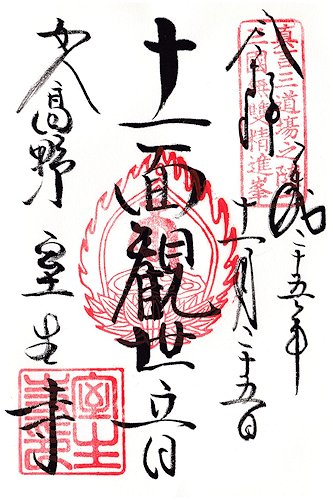 真言三道場之
無雙精進峯
奉拝
平成二十五年
十一月二十五日
十一面觀世音
女人高野 室生寺
室生